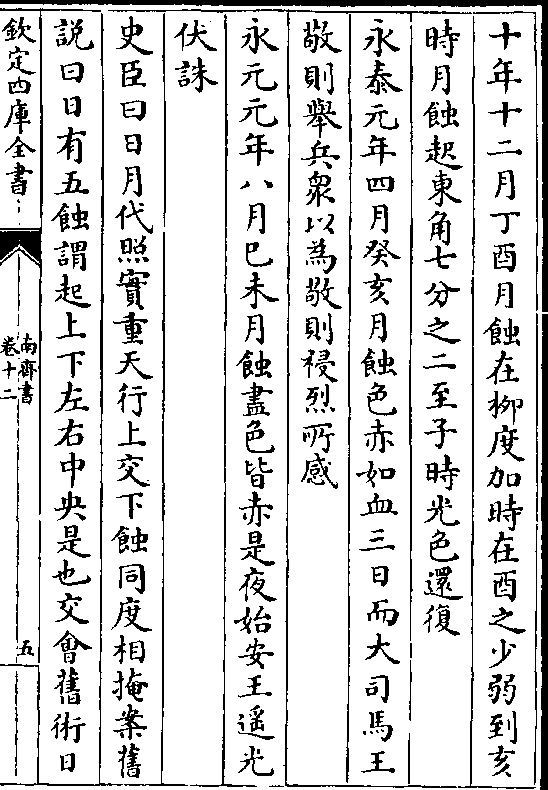 十年十二月丁酉月蝕在柳度加時在酉之少弱到亥
時月蝕起東角七分之二至子時光色還復
永泰元年四月癸亥月蝕色赤如血三日而大司馬王
敬則舉兵衆以為敬則祲烈所感
永元元年八月巳未月蝕盡色皆赤是夜始安王遥光
伏誅
史臣曰日月代照實重天行上交下蝕同度相掩案舊
説曰日有五蝕謂起上下左右中央是也交㑹舊術日
欽定四庫全書
南齊書
卷十二
五